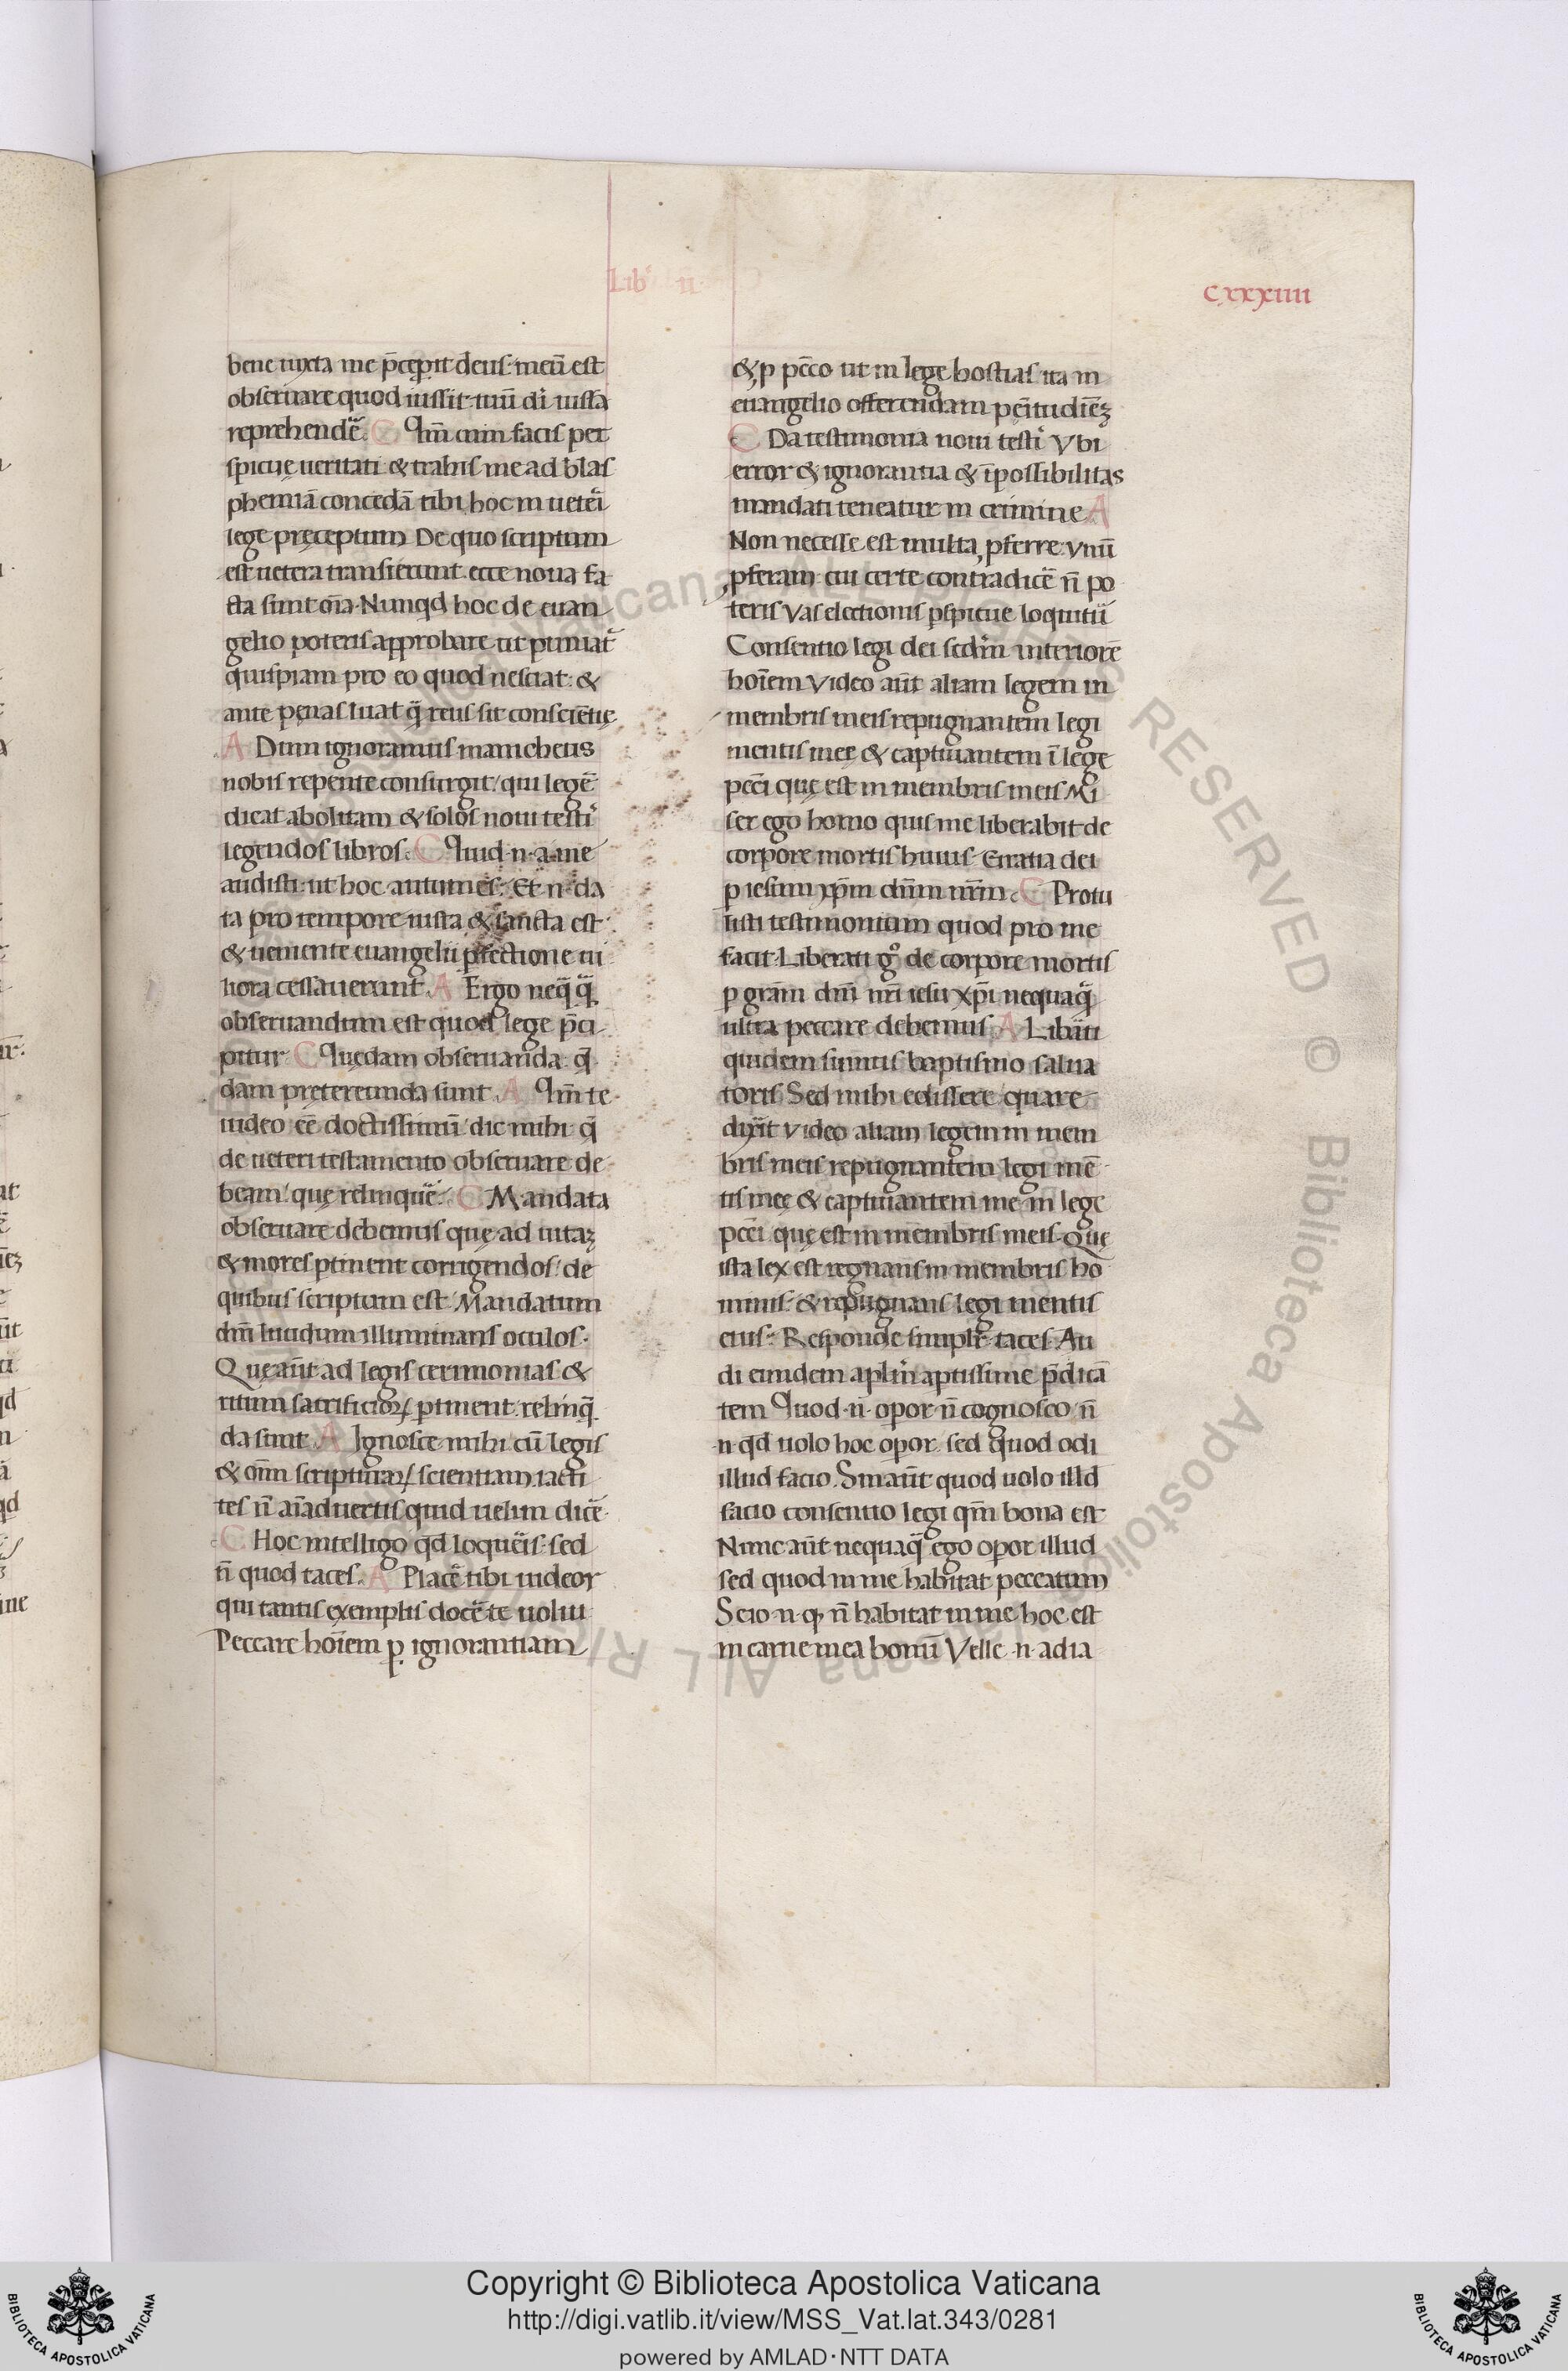 Lib' ii
cxxxiiii
bene iuxta me p̄cepit deus· meū est
obseruare quod iussit· tuū di iussa
reprehendē. C Im̄ cum facis per
spicuę ueritati & trahis me ad blas
phemiā concedā tibi hoc in ueteri
lege pręceptum De quo scriptum
est uetera transierunt· ecce noua fa
cta sunt on̄a· Nunqd hoc de euan
gelio poteris approbare ut puniat̄
quispiam pro eo quod nesciat: &
ante pęnas luat q̄ reus sit consciētię
A Dum ignoramus manicheus
nobis repente consurgit/ qui legē
dicat abolitam & solos noui testi
legendos libros. C Quid ·n· a me
audisti· ut hoc autumes? Et ·n· da
ta pro tempore iusta & sancta est·
& ueniente euangelii pfectione ui
liora cessauerunt. A Ergo neq̄q̄
obseruandum est quod lege p̄ci
pitur C Quędam obseruanda· q̄
dam pretereunda sunt. A Im̄ te
uideo eē doctissimū/ dic mihi q̄
de ueteri testamento obseruare de
beam/ quę relinquē. C Mandata
obseruare debemus quę ad uitaȝ
& mores ptinent corrigendos/ de
quibus scriptum est Mandatum
dn̄i lucidum illuminans oculos·
Quę aūt ad legis cerimonias &
ritum sacrificioꝝ ptinent relinq̄
da sunt. A Ignosce mihi cū legis
& om̄ scripturaꝝ scientiam iacti
tes n̄ aīaduertis quid uelim dicē·
C Hoc intelligo qd loqueris· sed
n̄ quod taces. A Placē tibi uideor
qui tantis exemplis docē te uolui
Peccare hoīem p ignorantiam
& p pēco ut in lege hostias ita in
euangelio offerendam pēitudiēȝ
C Da testimonia noui testi Vbi
error & ignorantia & īpossibilitas
mandati teneatur in crimine A
Non necesse est multa pferre· vnū
pferam· cui certe contradicē n̄ po
teris Vas electionis pspicue loquitū
Consentio legi dei sedm̄ interiorē
hoīem Video aūt aliam legem in
membris meis repugnantem legi
mentis meę & captiuantem ī lege
pēci quę est in membris meis Mi
ser ego homo quis me liberabit de
corpore mortis huius· Gratia dei
p iesum xp̄m dn̄m nr̄m. C Protu
listi testimonium quod pro me
facit· Liberati g° de corpore mortis
p grām dn̄i nr̄i iesu xp̄i nequaq̄
ultra peccare debemus. A Libāti
quidem sumus baptismo salua
toris Sed mihi edissere quare
dixit video aliam legem in mem
bris meis repugnantem legi mē
tis meę & captiuantem me in lege
pēci quę est in membris meis. Quę
ista lex est regnans in membris ho
minis· & repugnans legi mentis
eius? Responde simplr̄· taces· Au
di eundem aplm̄ aptissime p̄dicā
tem Quod ·n· operor n̄ cognosco/ n̄
·n· qd uolo hoc operor· sed quod odi
illud facio. Sin aūt quod uolo illd
facio consentio legi qm̄ bona est
Nunc aūt nequaq̄ ego operor illud
sed quod in me habitat peccatum
Scio ·n· q n̄ habitat in me hoc est
in carne mea bonū Velle ·n· adia
Copyright © Biblioteca Apostolica Vaticana
http://digi.vatlib.it/view/MSS_Vat.lat.343/0281
powered by AMLAD·NTT DATA